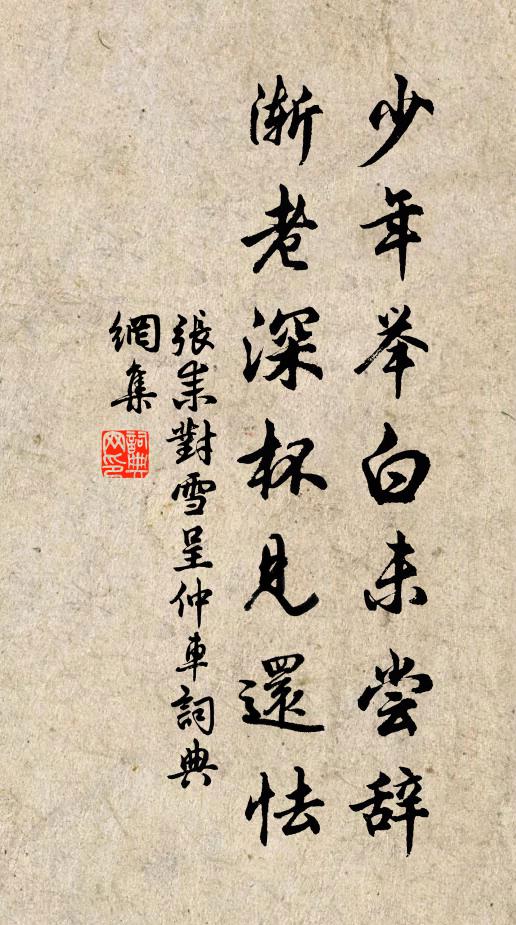 少年举白未尝辞
渐老深杯见還怯
張耒對雪呈仲車詞典
網集
詞典
网印